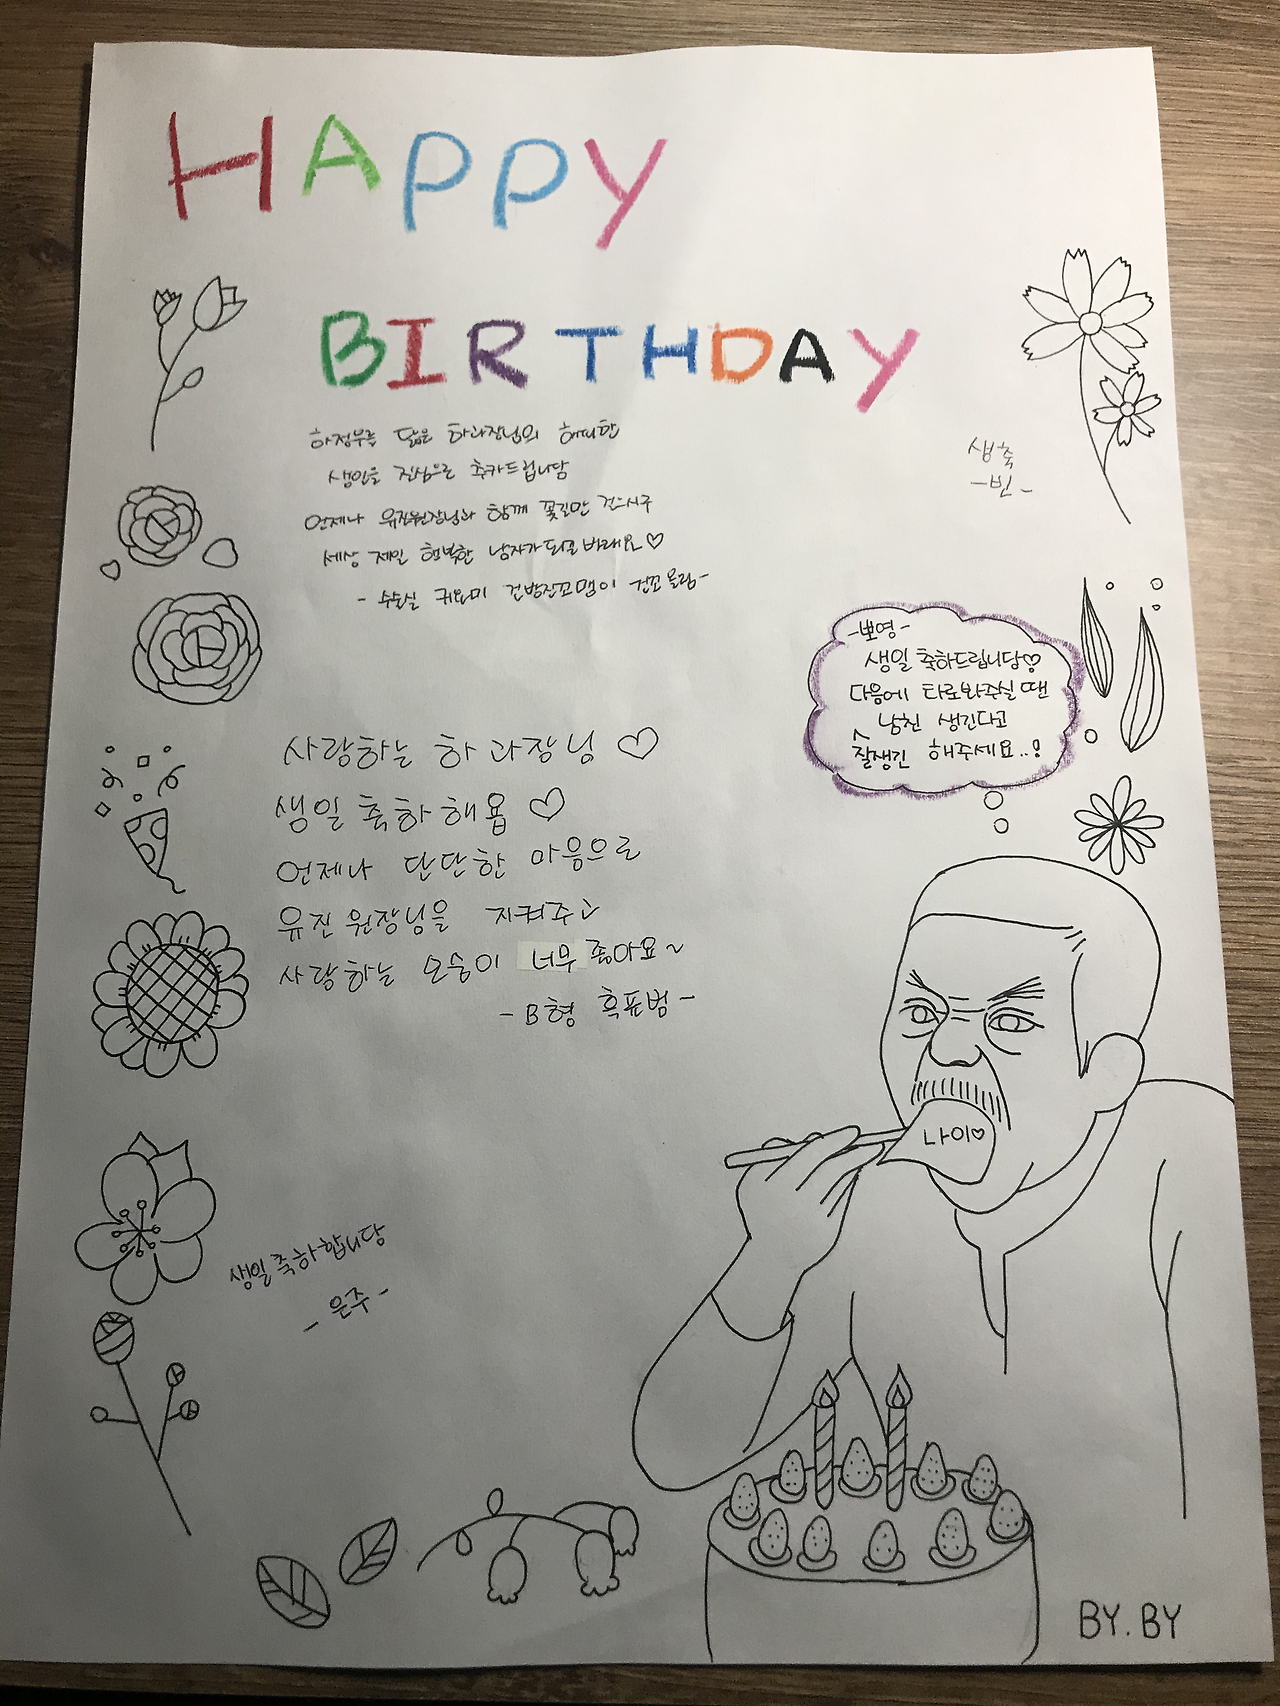 HAPPY
BIRTHDAY
하정우를 닮은 하과장님의 해피한
생일을 진심으로 축카드립니담
언제나 유진원장님과 함께 꽃길만 걷으시구
세상 제일 행복한 남자가되길바래요♡
- 수술실 귀요미 건방진꼬맹이 겸꼬올림-
생축
-빈-
-뽀영-
생일 축하드립니당♡
다음에 타로봐주실 땐
남친 생긴다고
^
잘생긴 해주세요..!
사랑하는 하 과장님 ♡
생일 축하해욥 ♡
언제나 단단한 마음으로
유진 원장님을 지켜주고
사랑하는 모습이 너무 좋아요~
- B형 흑표범 -
나이♡
생일축하합니당
- 은주 -
BY. BY